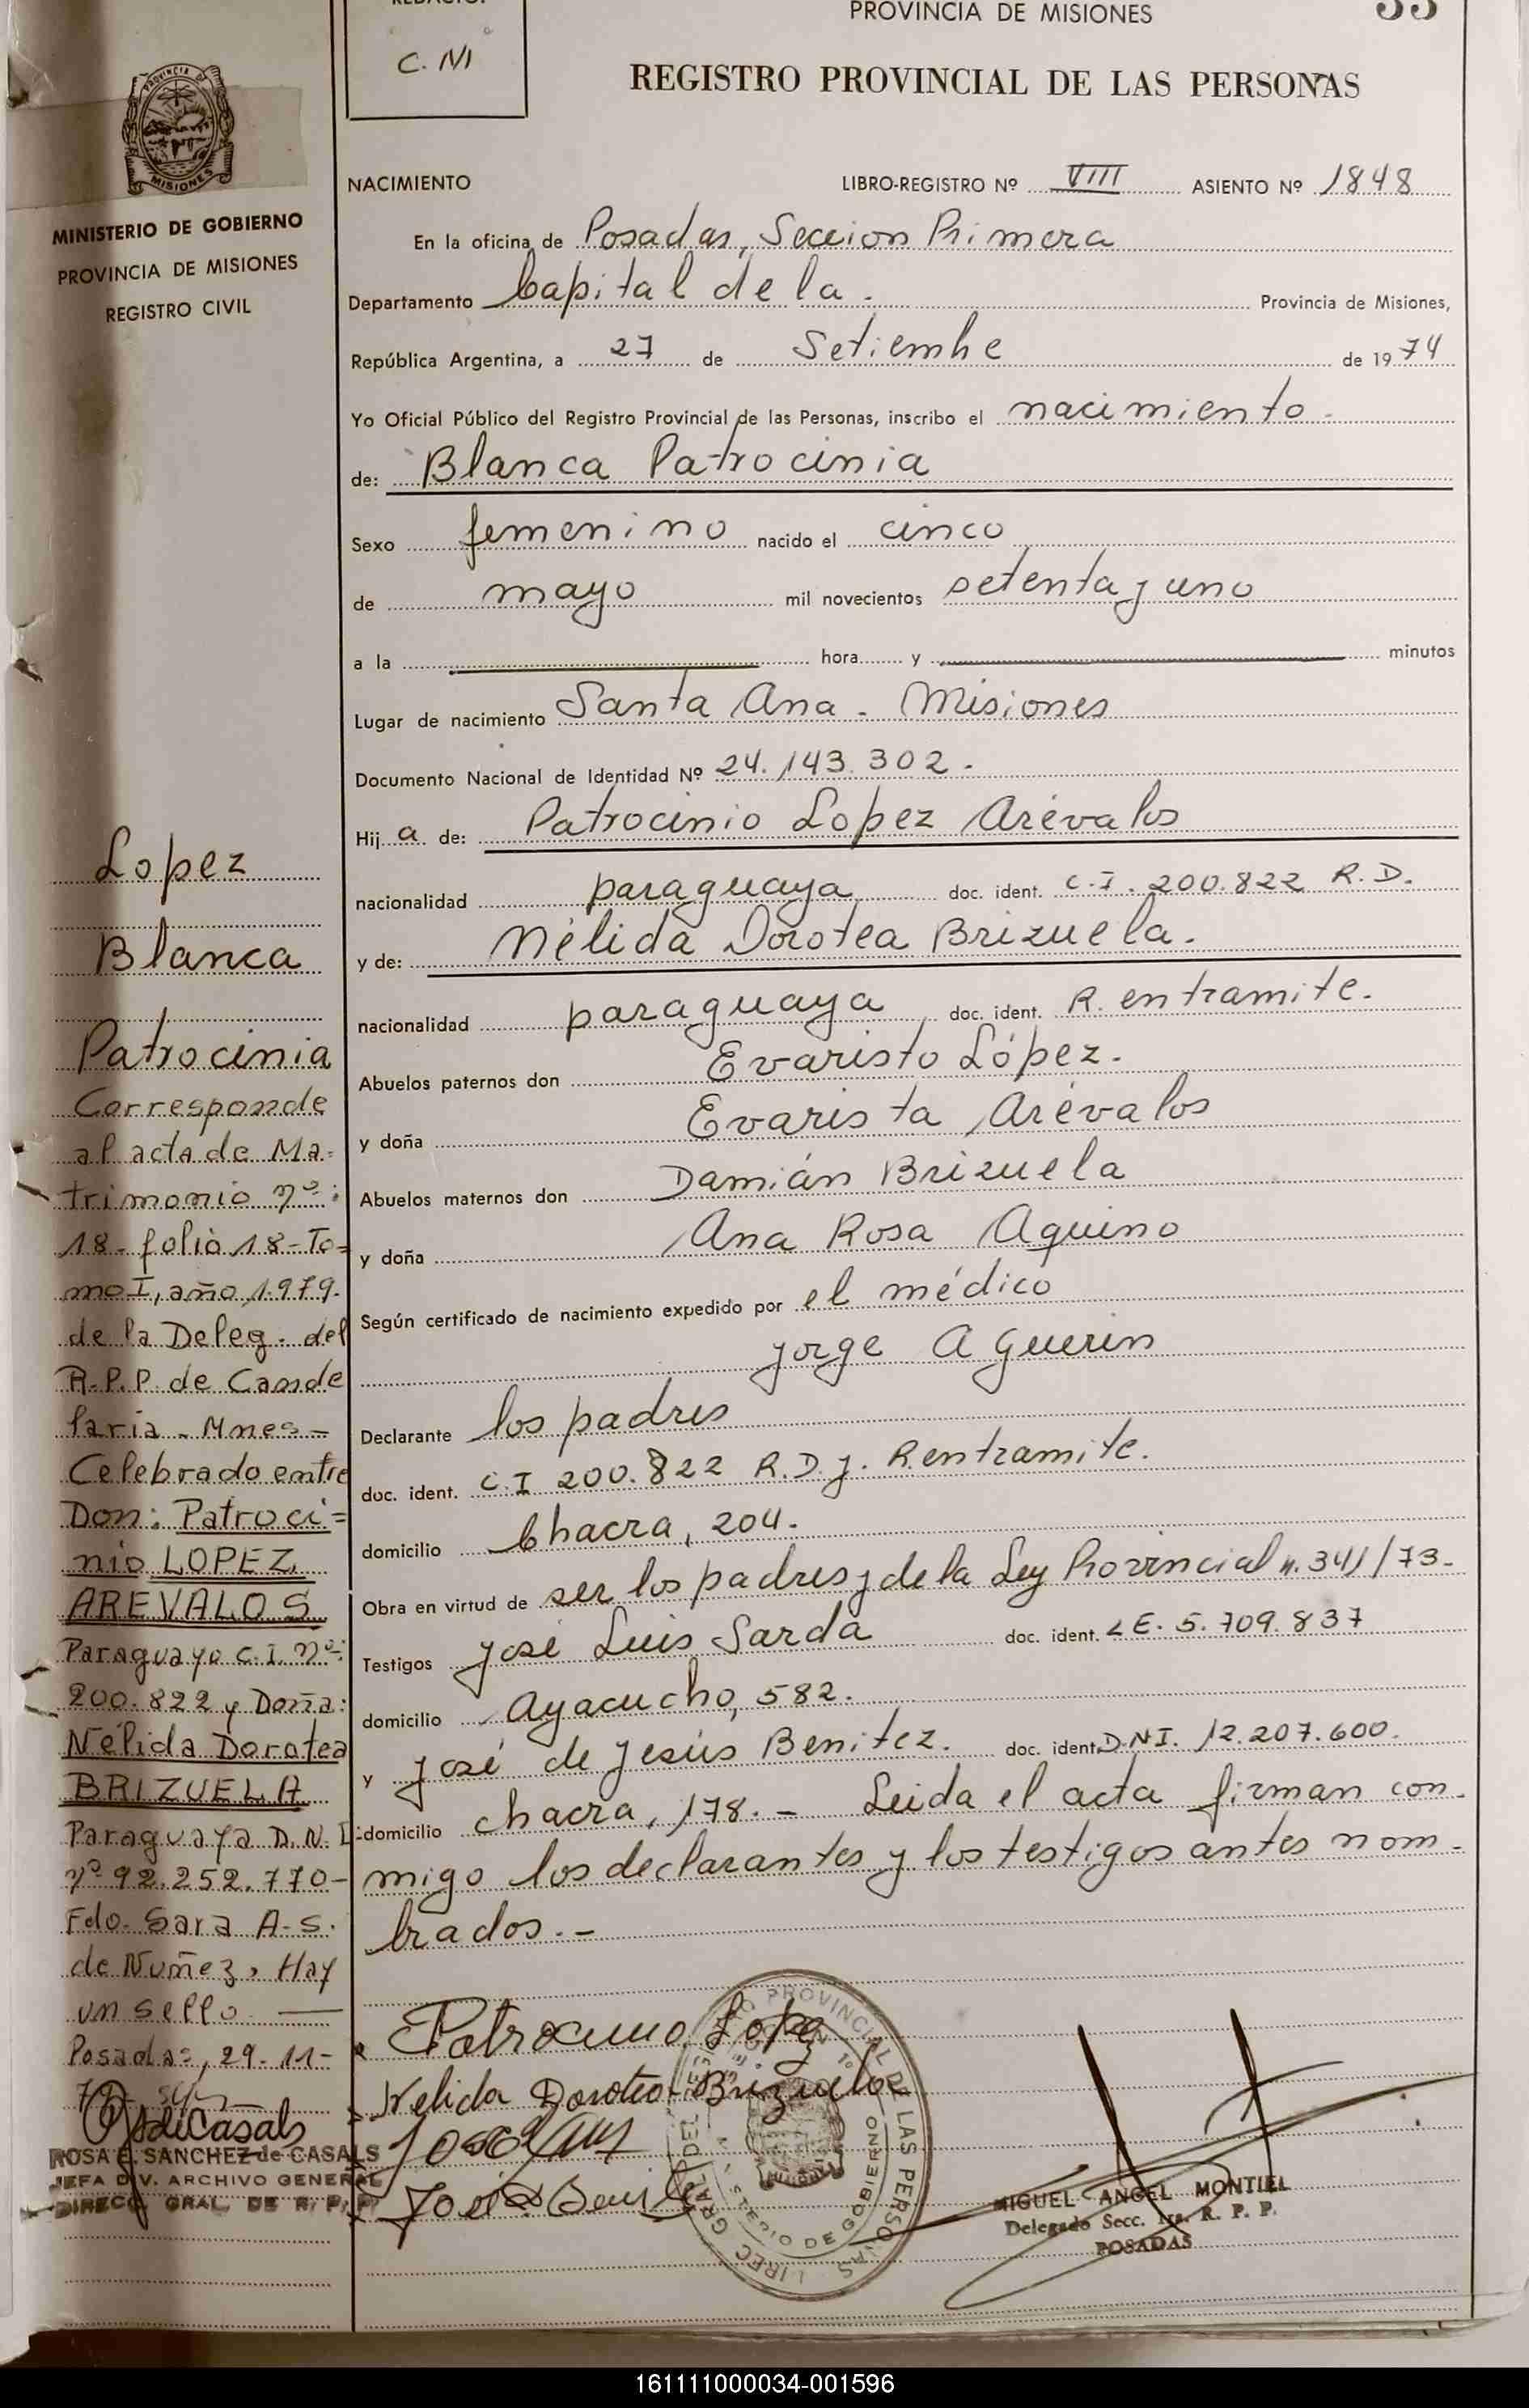 REDACTO:
C. M
PROVINCIA DE MISIONES
REGISTRO PROVINCIAL DE LAS PERSONAS
PROVINCIA DE
MISIONES
MINISTERIO DE GOBIERNO
PROVINCIA DE MISIONES
REGISTRO CIVIL
NACIMIENTO LIBRO-REGISTRO Nº VIII ASIENTO Nº 1848
En la oficina de Posadas, Seccion Primera
Departamento Capital de la. Provincia de Misiones,
República Argentina, a 27 de Setiembre de 1974
Yo Oficial Público del Registro Provincial de las Personas, inscribo el nacimiento
de: Blanca Patrocinia
Sexo femenino nacido el cinco
de mayo mil novecientos setenta y uno
a la hora y minutos
Lugar de nacimiento Santa Ana - Misiones
Documento Nacional de Identidad Nº 24.143.302.
Hija de: Patrocinio Lopez Arévalos
nacionalidad paraguaya doc. ident. C.I. 200.822 R.D.
y de: Nélida Dorotea Brizuela.
nacionalidad paraguaya doc. ident. R. en tramite.
Abuelos paternos don Evaristo López.
y doña Evarista Arévalos
Abuelos maternos don Damián Brizuela
y doña Ana Rosa Aquino
Según certificado de nacimiento expedido por el médico
Jorge A Guerin
Declarante los padres
doc. ident. C.I 200.822 R.D. y. R. en tramite.
domicilio Chacra, 204.
Obra en virtud de ser los padres y de la Ley Provincial n. 341/73-
Testigos José Luis Sarda doc. ident. LE. 5.709.837
domicilio Ayacucho, 582.
y José de Jesús Benitez. doc. ident. D.N.I. 12.207.600.
domicilio chacra, 178.- Leida el acta firman con-
migo los declarantes y los testigos antes nom-
brados.-
Lopez
Blanca
Patrocinia
Corresponde
al acta de Ma-
trimonio nº:
18-folio 18-To=
mo I, año 1.979.
de la Deleg. del
R.P.P. de Cande
laria - Mnes-
Celebrado entre
Don: Patroci=
nio LOPEZ
AREVALOS
Paraguayo C.I. nº:
200.822 y Doña:
Nélida Dorotea
BRIZUELA
Paraguaya D.N.I-
nº 92.252.770-
Fdo. Sara A-S.
de Nuñez, Hay
un sello.
Posadas, 29-11-
79
ROSA E. SANCHEZ de CASALS
JEFA DIV. ARCHIVO GENERAL
DIRECC. GRAL. DE R. P. P.
Patrocinio Lopez
Nelida Dorotea Brizuela
MIGUEL ANGEL MONTIEL
Delegado Secc. 1ra. R. P. P.
POSADAS
161111000034-001596